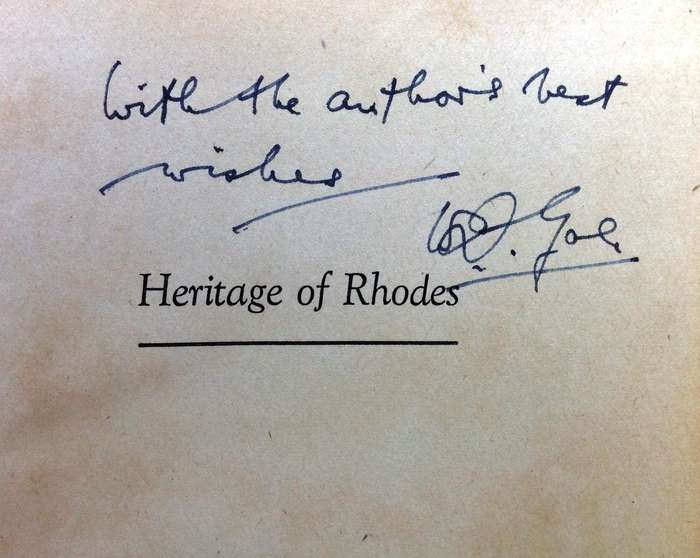 With the author's best
wishes
W.D. Gale
Heritage of Rhodes